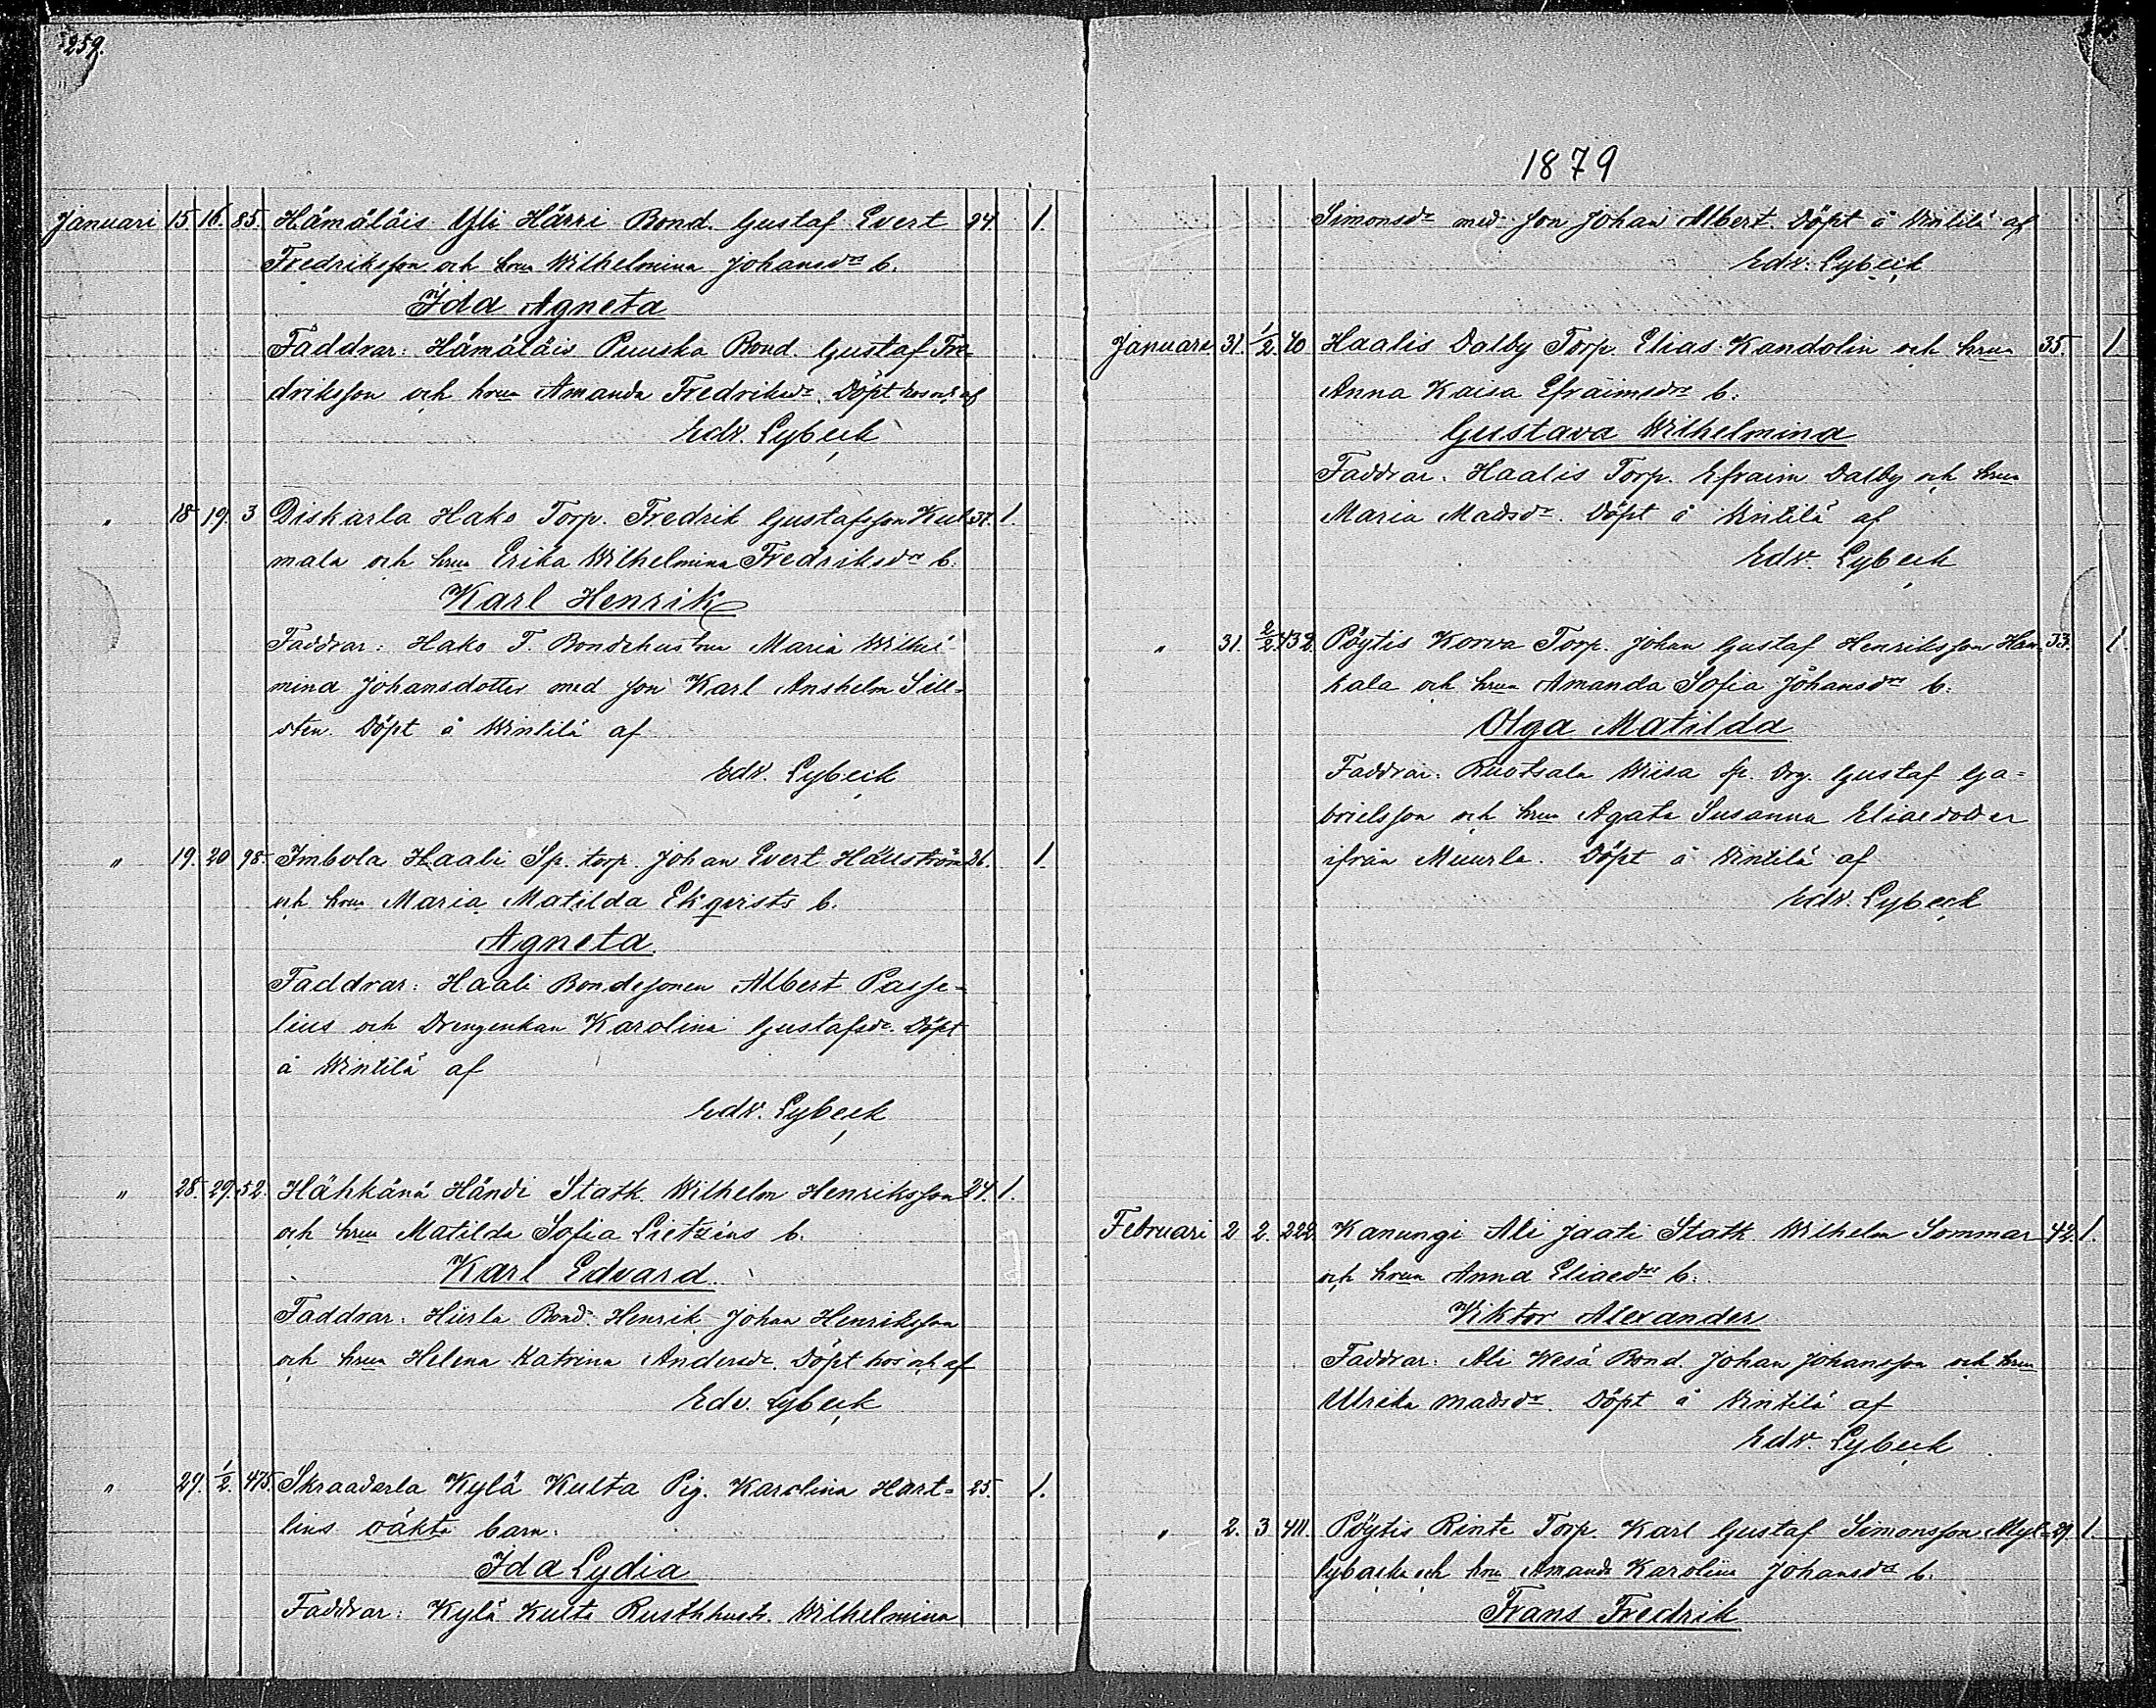 259.
Januari 15. 16. 85. Hämäläis Yli Härri Bond. Gustaf Evert 24. 1.
Fredriksson och hrun Wilhelmina Johansdrs b.
Ida Agneta
Faddrar: Hämäläis Puuska Bond. Gustaf Fre-
driksson och hrun Amanda Fredriksdr. Döpt hos och af
Edv. Lybeck
" 18 19. 3 Diskarla Hako Torp. Fredrik Gustafsson Kul- 37. 1.
mala och hrun Erika Wilhelmina Fredriksdrs b.
Karl Henrik
Faddrar: Hako T. Bondehustrun Maria Wilhel-
mina Johansdotter med son Karl Anshelm Sill-
sten. Döpt å Wintilä af
Edv. Lybeck
" 19. 20 98. Imbola Haali Sp. torp. Johan Evert 26. 1.
och hrun Maria Matilda Ekqvists b.
Agneta.
Faddrar: Haali Bondesonen Albert Passe-
lius och Drengenkan Karolina Gustafsdr. Döpt
å Wintilä af
Edv. Lybeck
" 28. 29. 52. Hähkänä Händi Statk. Wilhelm Henriksson 24. 1.
och hrun Matilda Sofia Lietzéns b.
Karl Edvard.
Faddrar: Hiirla Bond. Henrik Johan Henriksson
och hrun Helena Katrina Andersdr. Döpt hos och af
Edv. Lybeck
" 29. 1/2. 475. Skraadarla Kylä Kulta Pig. Karolina Hart- 25. 1.
lins oäkta barn.
Ida Lydia
Faddrar: Kylä Kulta Rusthhustr. Wilhelmina
1879
Simonsdr med son Johan Albert. Döpt å Wintilä af
Edv. Lybeck
Januari 31. 1/2. 40 Haalis Dalby Torp. Elias Kandolin och hrun 35. 1
Anna Kaisa Efraimsdrs b.
Gustava Wilhelmina
Faddrar: Haalis Torp. Efraim Dalby och hrun
Maria Madsdr. Döpt å Wintilä af
Edv. Lybeck
" 31. 2/2. 432. Pöytis Korva Torp. Johan Gustaf Henriksson Han- 33. 1.
kala och hrun Amanda Sofia Johansdrs b.
Olga Matilda
Faddrar: Ruotsala Wiisa fr. Drg. Gustaf Ga-
brielsson och hrun Agata Susanna Eliaedotter
ifrån Muurla. Döpt å Wintilä af
Edv. Lybeck
Februari 2 2. 222. Kanungi Ali Jaati Statk. Wilhelm Sommar 42. 1.
och hrun Anna Eliaedrs b.
Viktor Alexander
Faddrar: Ali Kesä Bond. Johan Johansson och hrun
Ulrika Madsdr. Döpt å Wintilä af
Edv. Lybeck
" 2. 3 411. Pöytis Rinte Torp. Karl Gustaf Simonsson Myl- 29. 1.
lybacka och hrun Amanda Karolina Johansdrs b.
Frans Fredrik